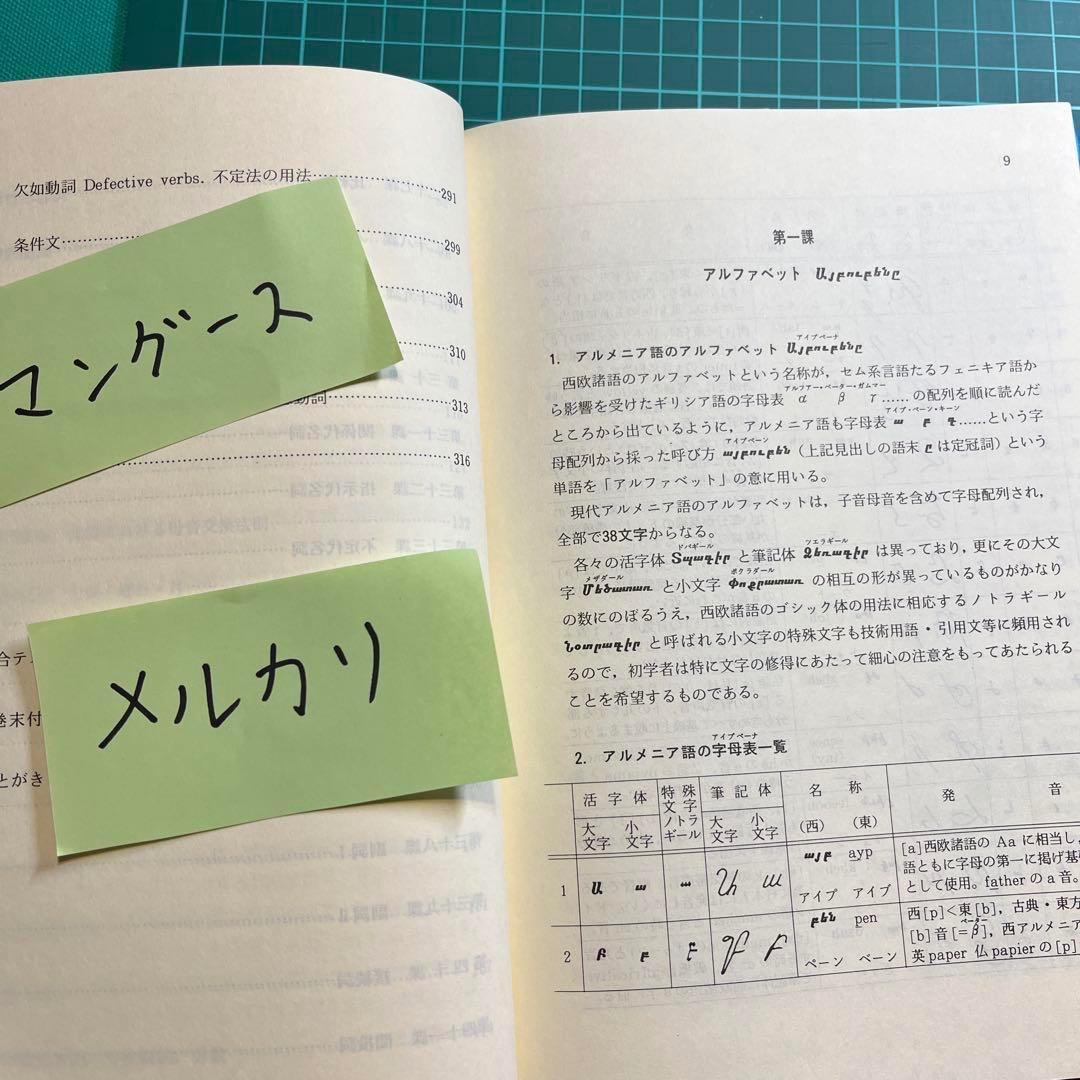 欠如動詞 Defective verbs. 不定法の用法……………………291
条件文……………………………………………299
304
310
動詞……………………313
316
マングース
メルカリ
合テ
巻末付
とがき
9
第一課
アルファベット Այբուբենը
1. アルメニア語のアルファベット Այբուբենը
アイプペーナ
西欧諸語のアルファベットという名称が，セム系言語たるフェニキア語か
ら影響を受けたギリシア語の字母表 α β γ ……の配列を順に読んだ
アルファー・ベーター・ガムマー
ところから出ているように，アルメニア語も字母表 ա բ գ ……という字
アイプ・ペーン・キーン
母配列から採った呼び方 այբուբեն（上記見出しの語末 ը は定冠詞）という
アイプペーン
単語を「アルファベット」の意に用いる。
現代アルメニア語のアルファベットは，子音母音を含めて字母配列され，
全部で38文字からなる。
各々の活字体 Տպագիր と筆記体 Ձեռագիր は異っており，更にその大文
ドバギール ツェラギール
字 Մեծատառ と小文字 Փոքրատառ の相互の形が異っているものがかなり
メザダール ポクラダール
の数にのぼるうえ，西欧諸語のゴシック体の用法に相応するノトラギール
Նօտրագիր と呼ばれる小文字の特殊文字も技術用語・引用文等に頻用され
るので，初学者は特に文字の修得にあたって細心の注意をもってあたられる
ことを希望するものである。
2. アルメニア語の字母表一覧
アイプペーナ
活字体 特殊文字ノトラギール 筆記体 名称 発音
大文字 小文字 大文字 小文字 （西）（東）
1 Ա ա ա Ա ա այբ ayp [a]西欧諸語の Aa に相当し，
アイプ アイプ 語ともに字母の第一に掲げ基
として使用。fatherの a 音。
2 Բ բ բ Բ բ բեն pen 西[p]<東[b]，古典・東方
[b]音[=β]，西アルメニア
ペーン ペーン 英paper 仏papierの[p]